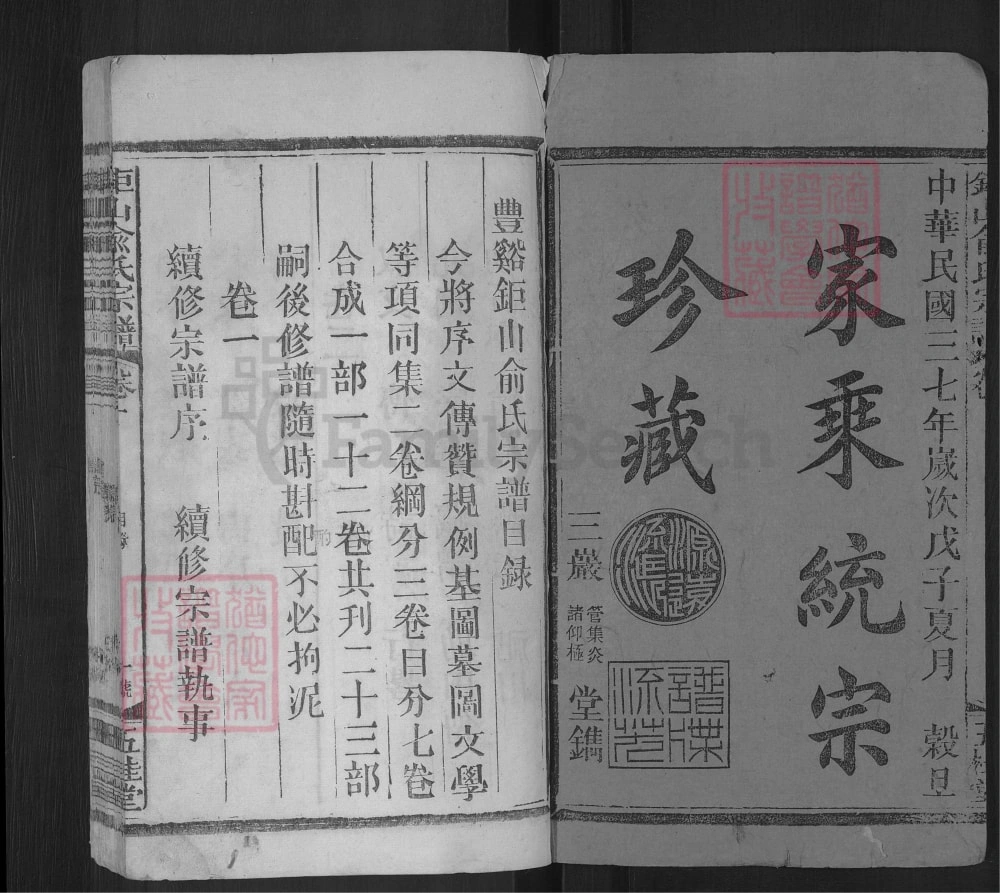 中華民國三七年歲次戊子夏月 穀旦
家乘統宗
珍藏
三巖
管集炎
諸仰極
堂鐫
譜牒
流芳
豐谿鉅山俞氏宗譜目錄
今將序文傳贊規例基圖墓圖文學
等項同集二卷綱分三卷目分七卷
合成一部一十二卷共刊二十三部
嗣後修譜隨時斟配不必拘泥
卷一
續修宗譜序 續修宗譜執事
鉅山俞氏宗譜
五桂堂
FamilySearch